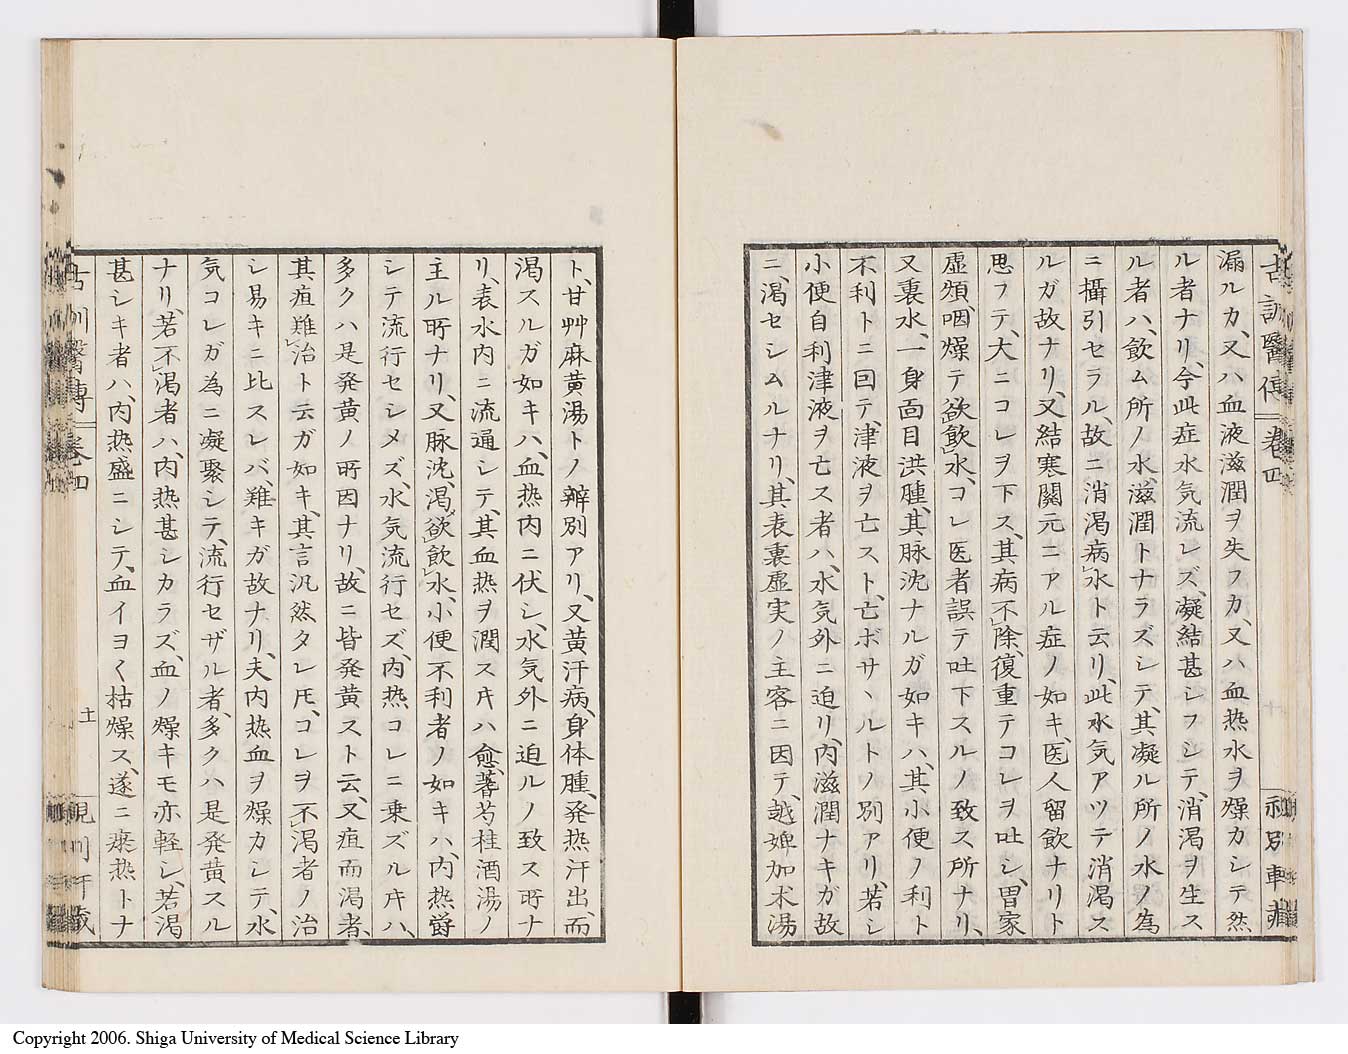 古訓醫傳 卷四
漏ルカ、又ハ血液滋潤ヲ失フカ、又ハ血热水ヲ燥カシテ然
ル者ナリ、今此症水気流レズ、凝結甚シフシテ、消渇ヲ生ス
ル者ハ、飲ム所ノ水、滋潤トナラズシテ、其凝ル所ノ水ノ為
ニ攝引セラル、故ニ消渇病水ト云リ、此水気アツテ消渇ス
ルガ故ナリ、又結寒關元ニアル症ノ如キ、医人留飲ナリト
思フテ、大ニコレヲ下ス、其病不除、復重テコレヲ吐シ、胃家
虚煩、咽燥テ欲飲水、コレ医者誤テ吐下スルノ致ス所ナリ、
又裏水、一身面目洪腫、其脉沈ナルガ如キハ、其小便ノ利ト
不利トニ因テ、津液ヲ亡スト、亡ボサヽルトノ別アリ、若シ
小便自利津液ヲ亡ス者ハ、水気外ニ迫リ、内滋潤ナキガ故
ニ、渇セシムルナリ、其表裏虚実ノ主客ニ因テ、越婢加朮湯
ト、甘艸麻黄湯トノ辨別アリ、又黄汗病、身体腫、発热汗出、而
渇スルガ如キハ、血热内ニ伏シ、水気外ニ迫ルノ致ス所ナ
リ、表水、内ニ流通シテ、其血热ヲ潤ス片ハ愈、蓍芍桂酒湯ノ
主ル所ナリ、又脉沈、渇欲飲水、小便不利者ノ如キハ、内热欝
シテ流行セシメズ、水気流行セズ、内热コレニ乗ズル片ハ、
多クハ是発黄ノ所因ナリ、故ニ皆発黄スト云、又疸而渇者、
其疸難治ト云ガ如キ、其言汎然タレ𪜈、コレヲ不渇者ノ治
シ易キニ比スレバ、難キガ故ナリ、夫内热血ヲ燥カシテ、水
気コレガ為ニ凝聚シテ、流行セザル者、多クハ是発黄スル
ナリ、若不渇者ハ、内热甚シカラズ、血ノ燥キモ亦軽シ、若渇
甚シキ者ハ、内热盛ニシテ、血イヨ〱枯燥ス、遂ニ瘀热トナ
古訓醫傳 卷四
十一
Copyright 2006. Shiga University of Medical Science Library